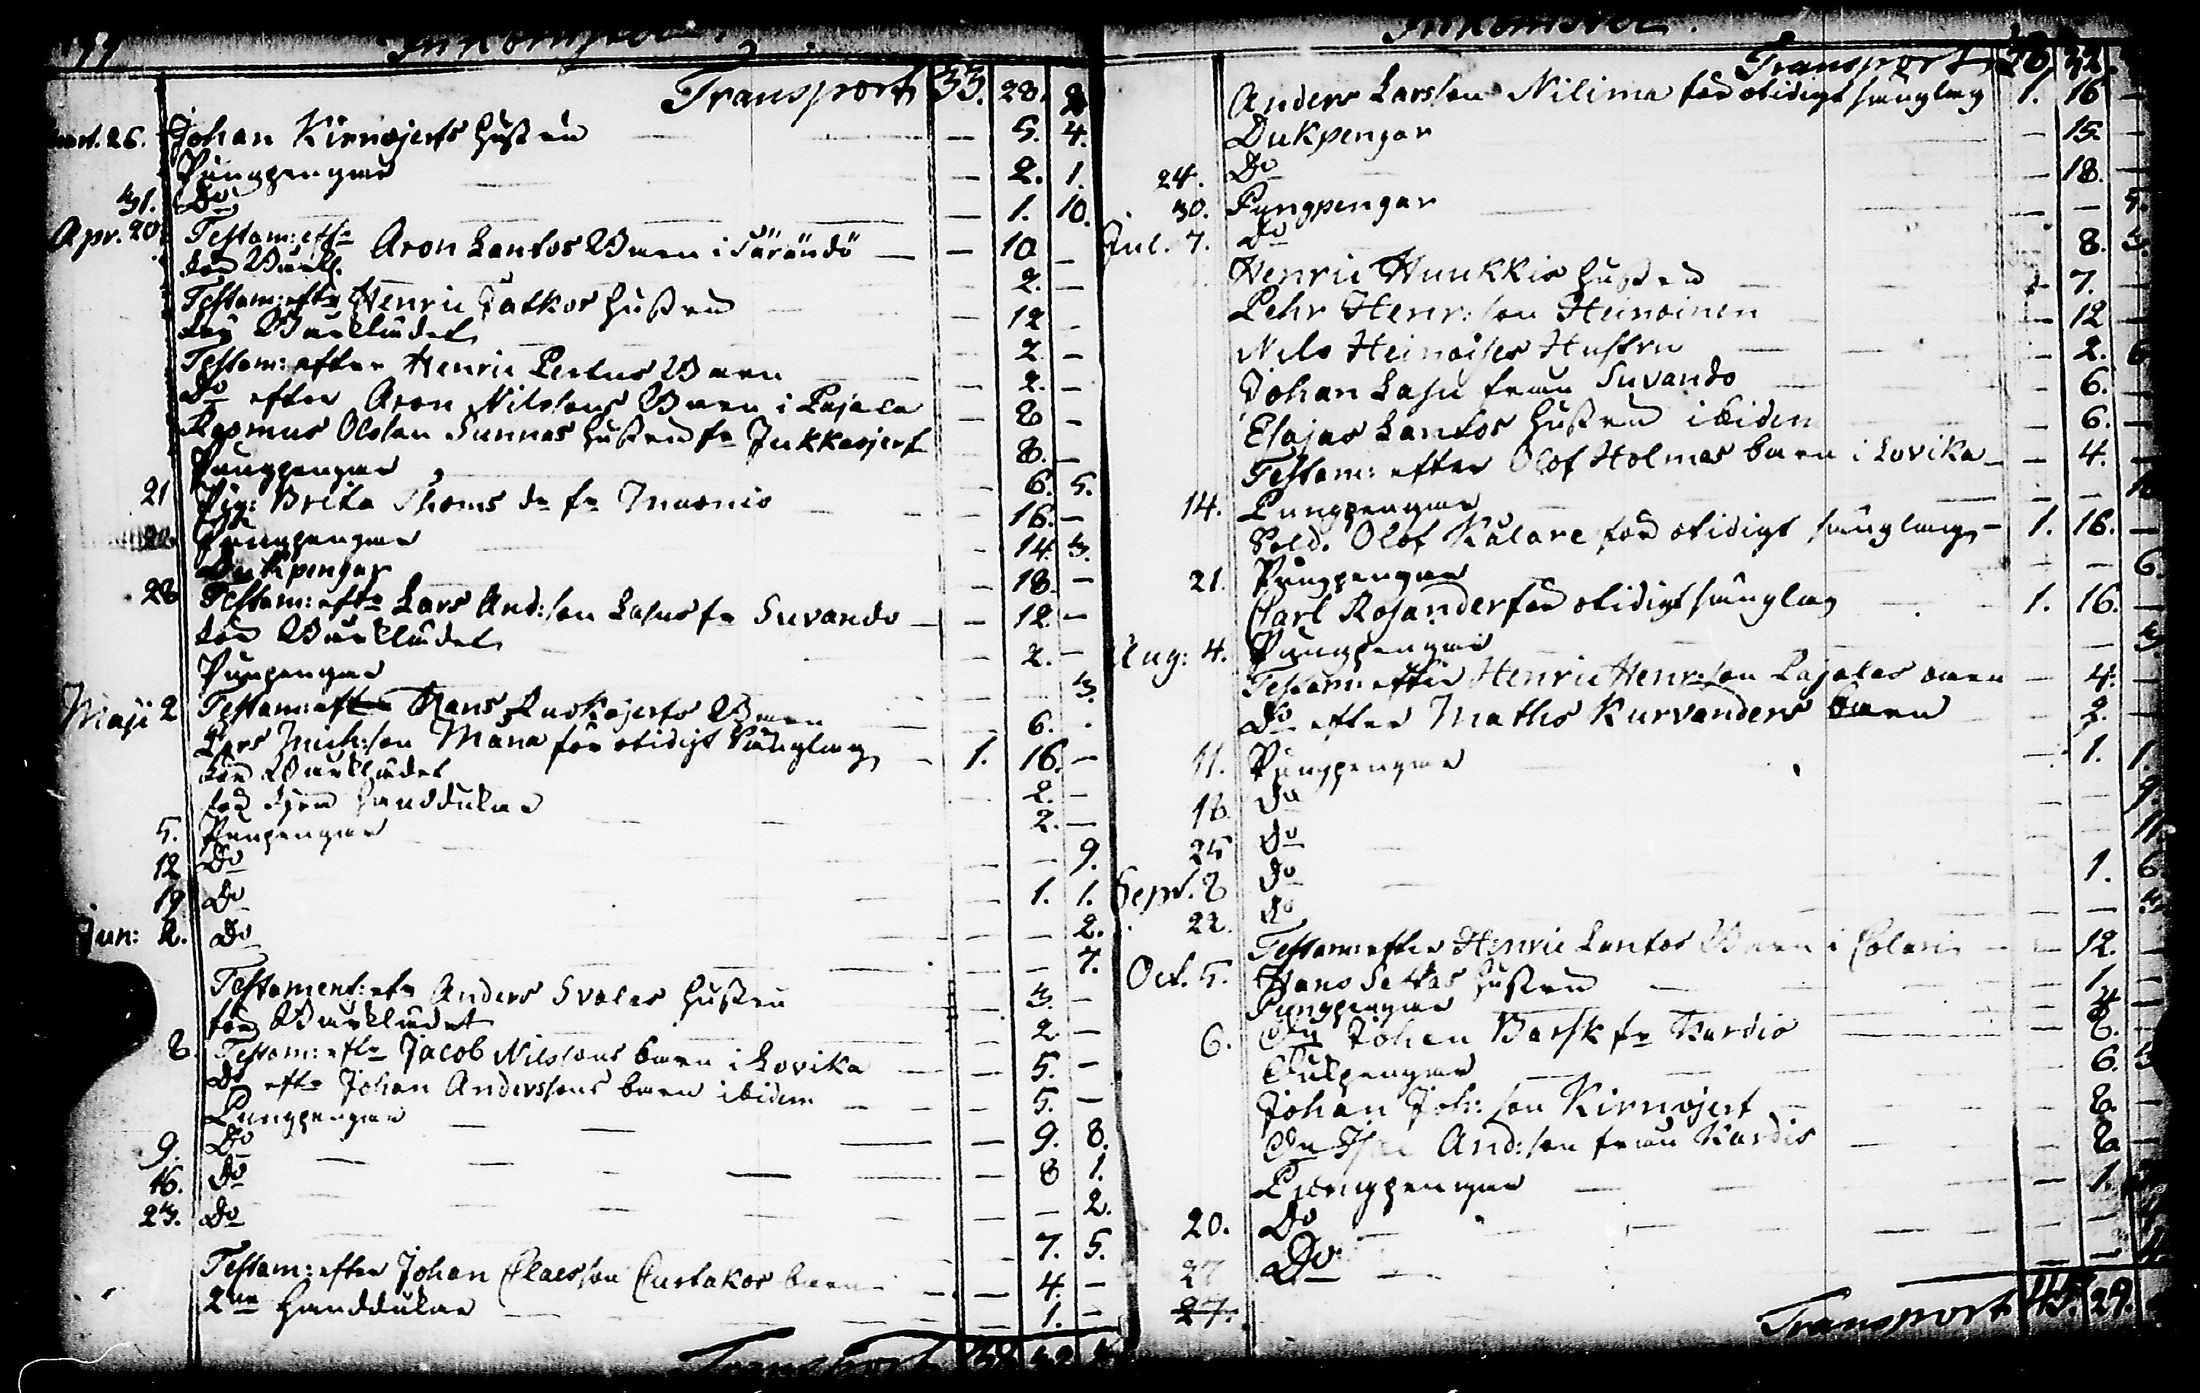 Inkomster.
Transport 33. 28. 2
Mart. 26. Johan Kirnojerfs hustru — 5. 4.
Pungpengar — 2. 1.
31. Do — 1. 10.
Apr. 20. Testam: eftr Aron Lantos Barn i Täräндö — 10 —
för Bårkl. 2. —
Testam: eftr Henric Tatkos hustru — 12 —
för Bårklädet 2 —
Testam: efter Henric Pertus Barn — 2. —
Do efter Aron Nilssons Barn i Pajala — 8 —
Rasmus Olsson Sunnas hustru fr Jukkasjerf 8. —
Pungpengar — 6. 5.
21 Pig: Brita Thoms dr fr Muonio 16. —
22 Pungpengar — 14. 3.
Dukpengar — 18. —
28 Testam: eftr Lars And:son Lasus fr Suvando — 12 —
för Bårklädet — 2. —
Pungpengar 3.
Maji 2 Testam: efter Hans Ruokojerfs Barn 6.
Lars Mich:son Mana för otidigt sänglag 1. 16. —
för Bårklädet 2. —
för handdukar 2. —
5. Pungpengar — 9.
12 Do — 1. 1.
19 Do — — 2.
Jun: 2. Do — — 7.
Testament: eftr Anders Svalas hustru — 3. —
för Bårklädet — 2. —
8. Testam: eftr Jacob Nilssons barn i Lovika 5. —
Do eftr Johan Anderssons barn ibidem — 5. —
Pungpengar — 9. 8.
9. Do — 8 1.
16. Do — — 2.
23. Do — 7. 5.
Testam: efter Johan Claesson barn — 4. —
2ne handdukar — 1. —
Transport 38 32
Inkomster.
Transport 38 32.
Anders Larsson Nilima för otidigt sänglag 1. 16 —
Dukpengar — 15. —
24. Do — 18. —
30. Pungpengar — — 5.
Jul. 7. Do 8. 3.
Henric Huukkis hustru — 7. —
Pehr Henr:son Heinoinen — 12 —
Nils Heinoises Hustru — 2. 6
Johan Lasu från Suvando — 6. —
Esajas Lantos hustru ibidem — 6. —
Testam: efter Olof Holmas barn i Lovika — 4. —
14. Pungpengar — —
Sold. Olof Kålare för otidigt sänglag 1. 16. —
21. Pungpengar — — 6.
Carl Rosander för otidigt sänglag 1. 16. —
Aug: 4. Pungpengar — — 3
Testam: efter Henric Henr:son Pajalas barn — 4. —
Do efter Maths Kurvanders barn — 2. —
11. Pungpengar — 1. 1.
18. Do — — 9.
25 Do — — 11.
Sept. 8 Do 1. 6
22. Do — — 3
Testam: efter Henric Lantos Barn i Colari — 12. —
Oct. 5. Hans hustru 1. —
Pungpengar 4 —
6. Johan Barsk fr Kardis 8. —
Pungpengar 6. 3
Johan Joh:son Kirnojerf 8. —
And:son från Kardis 8 —
Pungpengar — 1.
20. Do — —
27 Do — —
27.
Transport 45. 29.